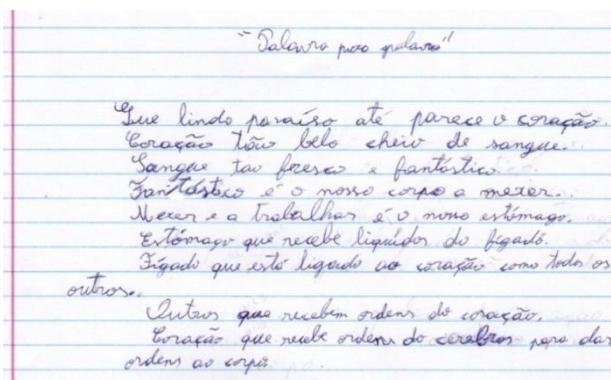 "Palavra puxa palavra"
Que lindo paraíso até parece o coração.
Coração tão belo cheio de sangue.
Sangue tao fresco e fantástico.
Fantástico é o nosso corpo a mexer.
Mexer e a trabalhar é o nosso estômago.
Estômago que recebe liquídos do fígado.
Fígado que está ligado ao coração como todos os
outros.
Outros que recebem ordens do coração.
Coração que recebe ordens do cerebro para dar
ordens ao corpo.